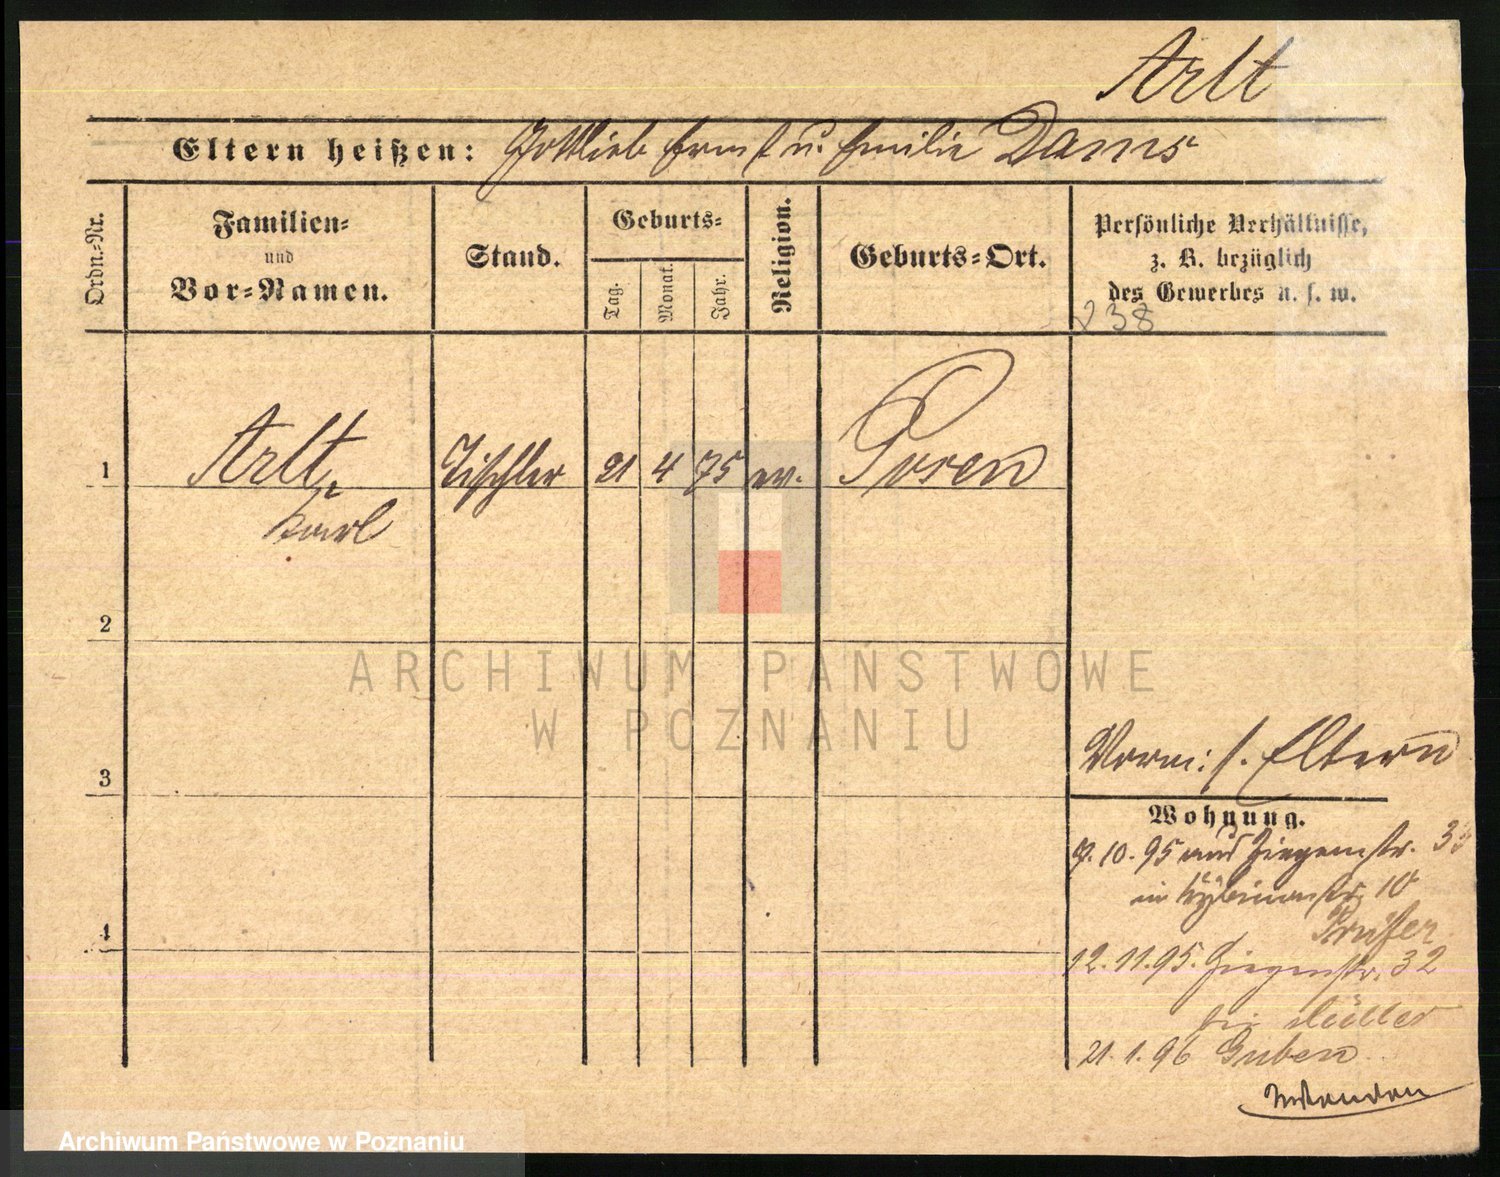 Arlt
Eltern heißen: Gottlieb Ernst u. Emilie Dams
Ordn.=Nr.
Familien=
und
Vor=Namen.
Stand.
Geburts=
Tag.
Monat.
Jahr.
Religion.
Geburts=Ort.
Persönliche Verhältnisse,
z. B. bezüglich
des Gewerbes u. s. w.
238
1 Arlt, Tischler 21 4 75 ev. Posen
Karl
2
ARCHIWUM PAŃSTWOWE
W POZNANIU
Vorm: s. Eltern
3
Wohnung.
7. 10. 95 aus Ziegenstr. 33
in 10
4
Prüfer
12. 11. 95. Ziegenstr. 32
bei Müller
21. 1. 96 Guben
Archiwum Państwowe w Poznaniu